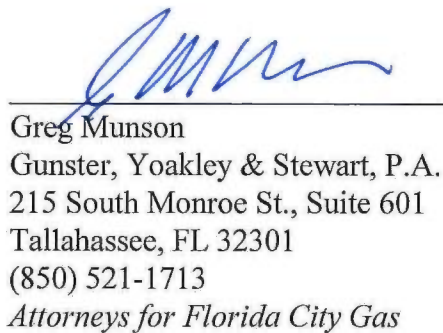 Greg Munson
Gunster, Yoakley & Stewart, P.A.
215 South Monroe St., Suite 601
Tallahassee, FL 32301
(850) 521-1713
Attorneys for Florida City Gas